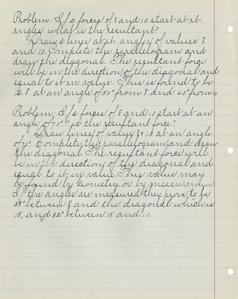 Problem. If forces of 8 and 10 start at rt
angles what is the resultant?
Draw lines at rt angles of values 8
and 10 complete the parallelogram and
draw the diagonal. The resultant force
will be in the direction of the diagonal and
equal to it in value. This is found to be
12.8 at an angle of from 8 and from 10
Problem. If forces of 8 and 10 start at an
angle of what is the resultant force?
Draw lines of value 8 & 10 at an angle
of Complete the parallelogram and draw
the diagonal. The resultant force will
be in the direction of the diagonal and
equal to it in value. This value may
be found by geometry or by measurement
If the angles are measured they prove to be
between 8 and the diagonal which is
15, and between 15 and 10.